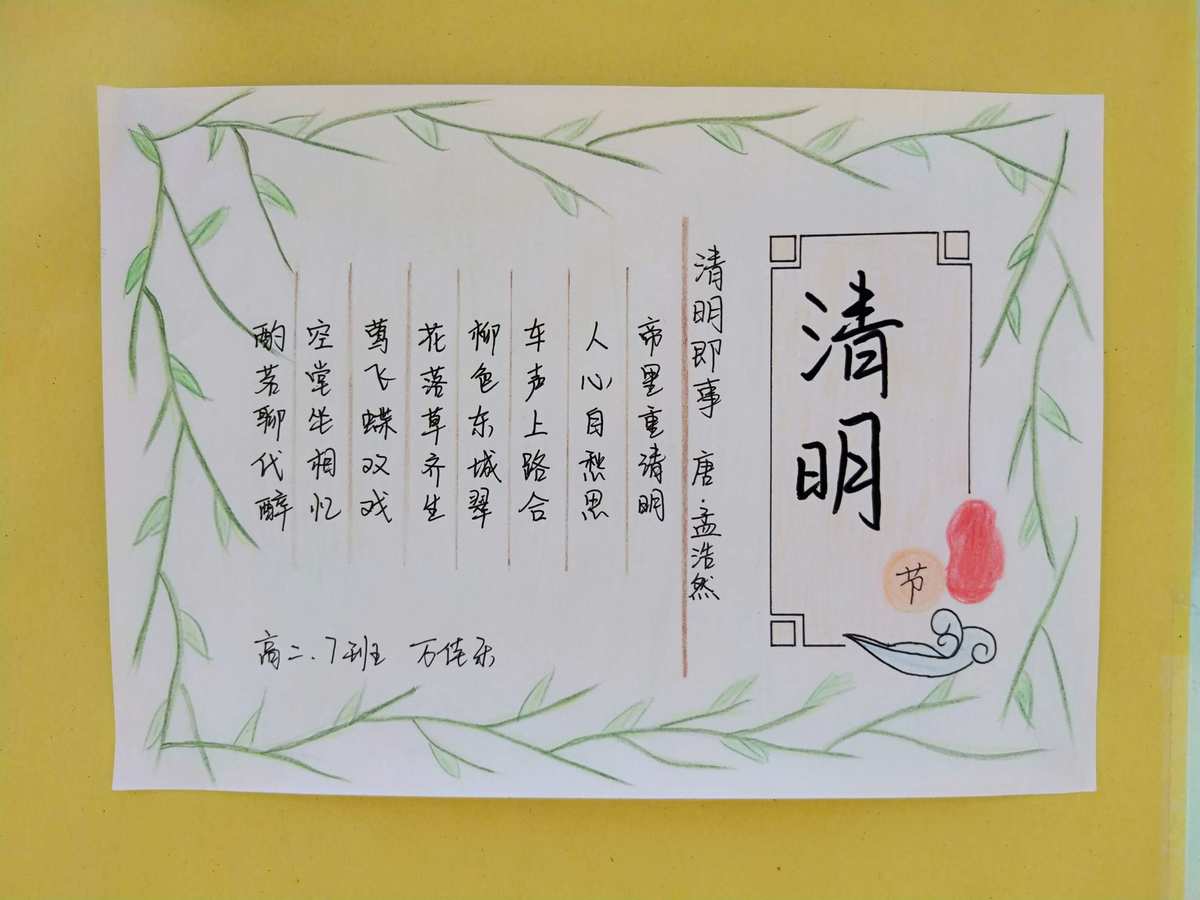 清明
节
清明即事 唐·孟浩然
帝里重清明
人心自愁思
车声上路合
柳色东城翠
花落草齐生
莺飞蝶双戏
空堂坐相忆
酌茗聊代醉
高二.7班 万佳乐